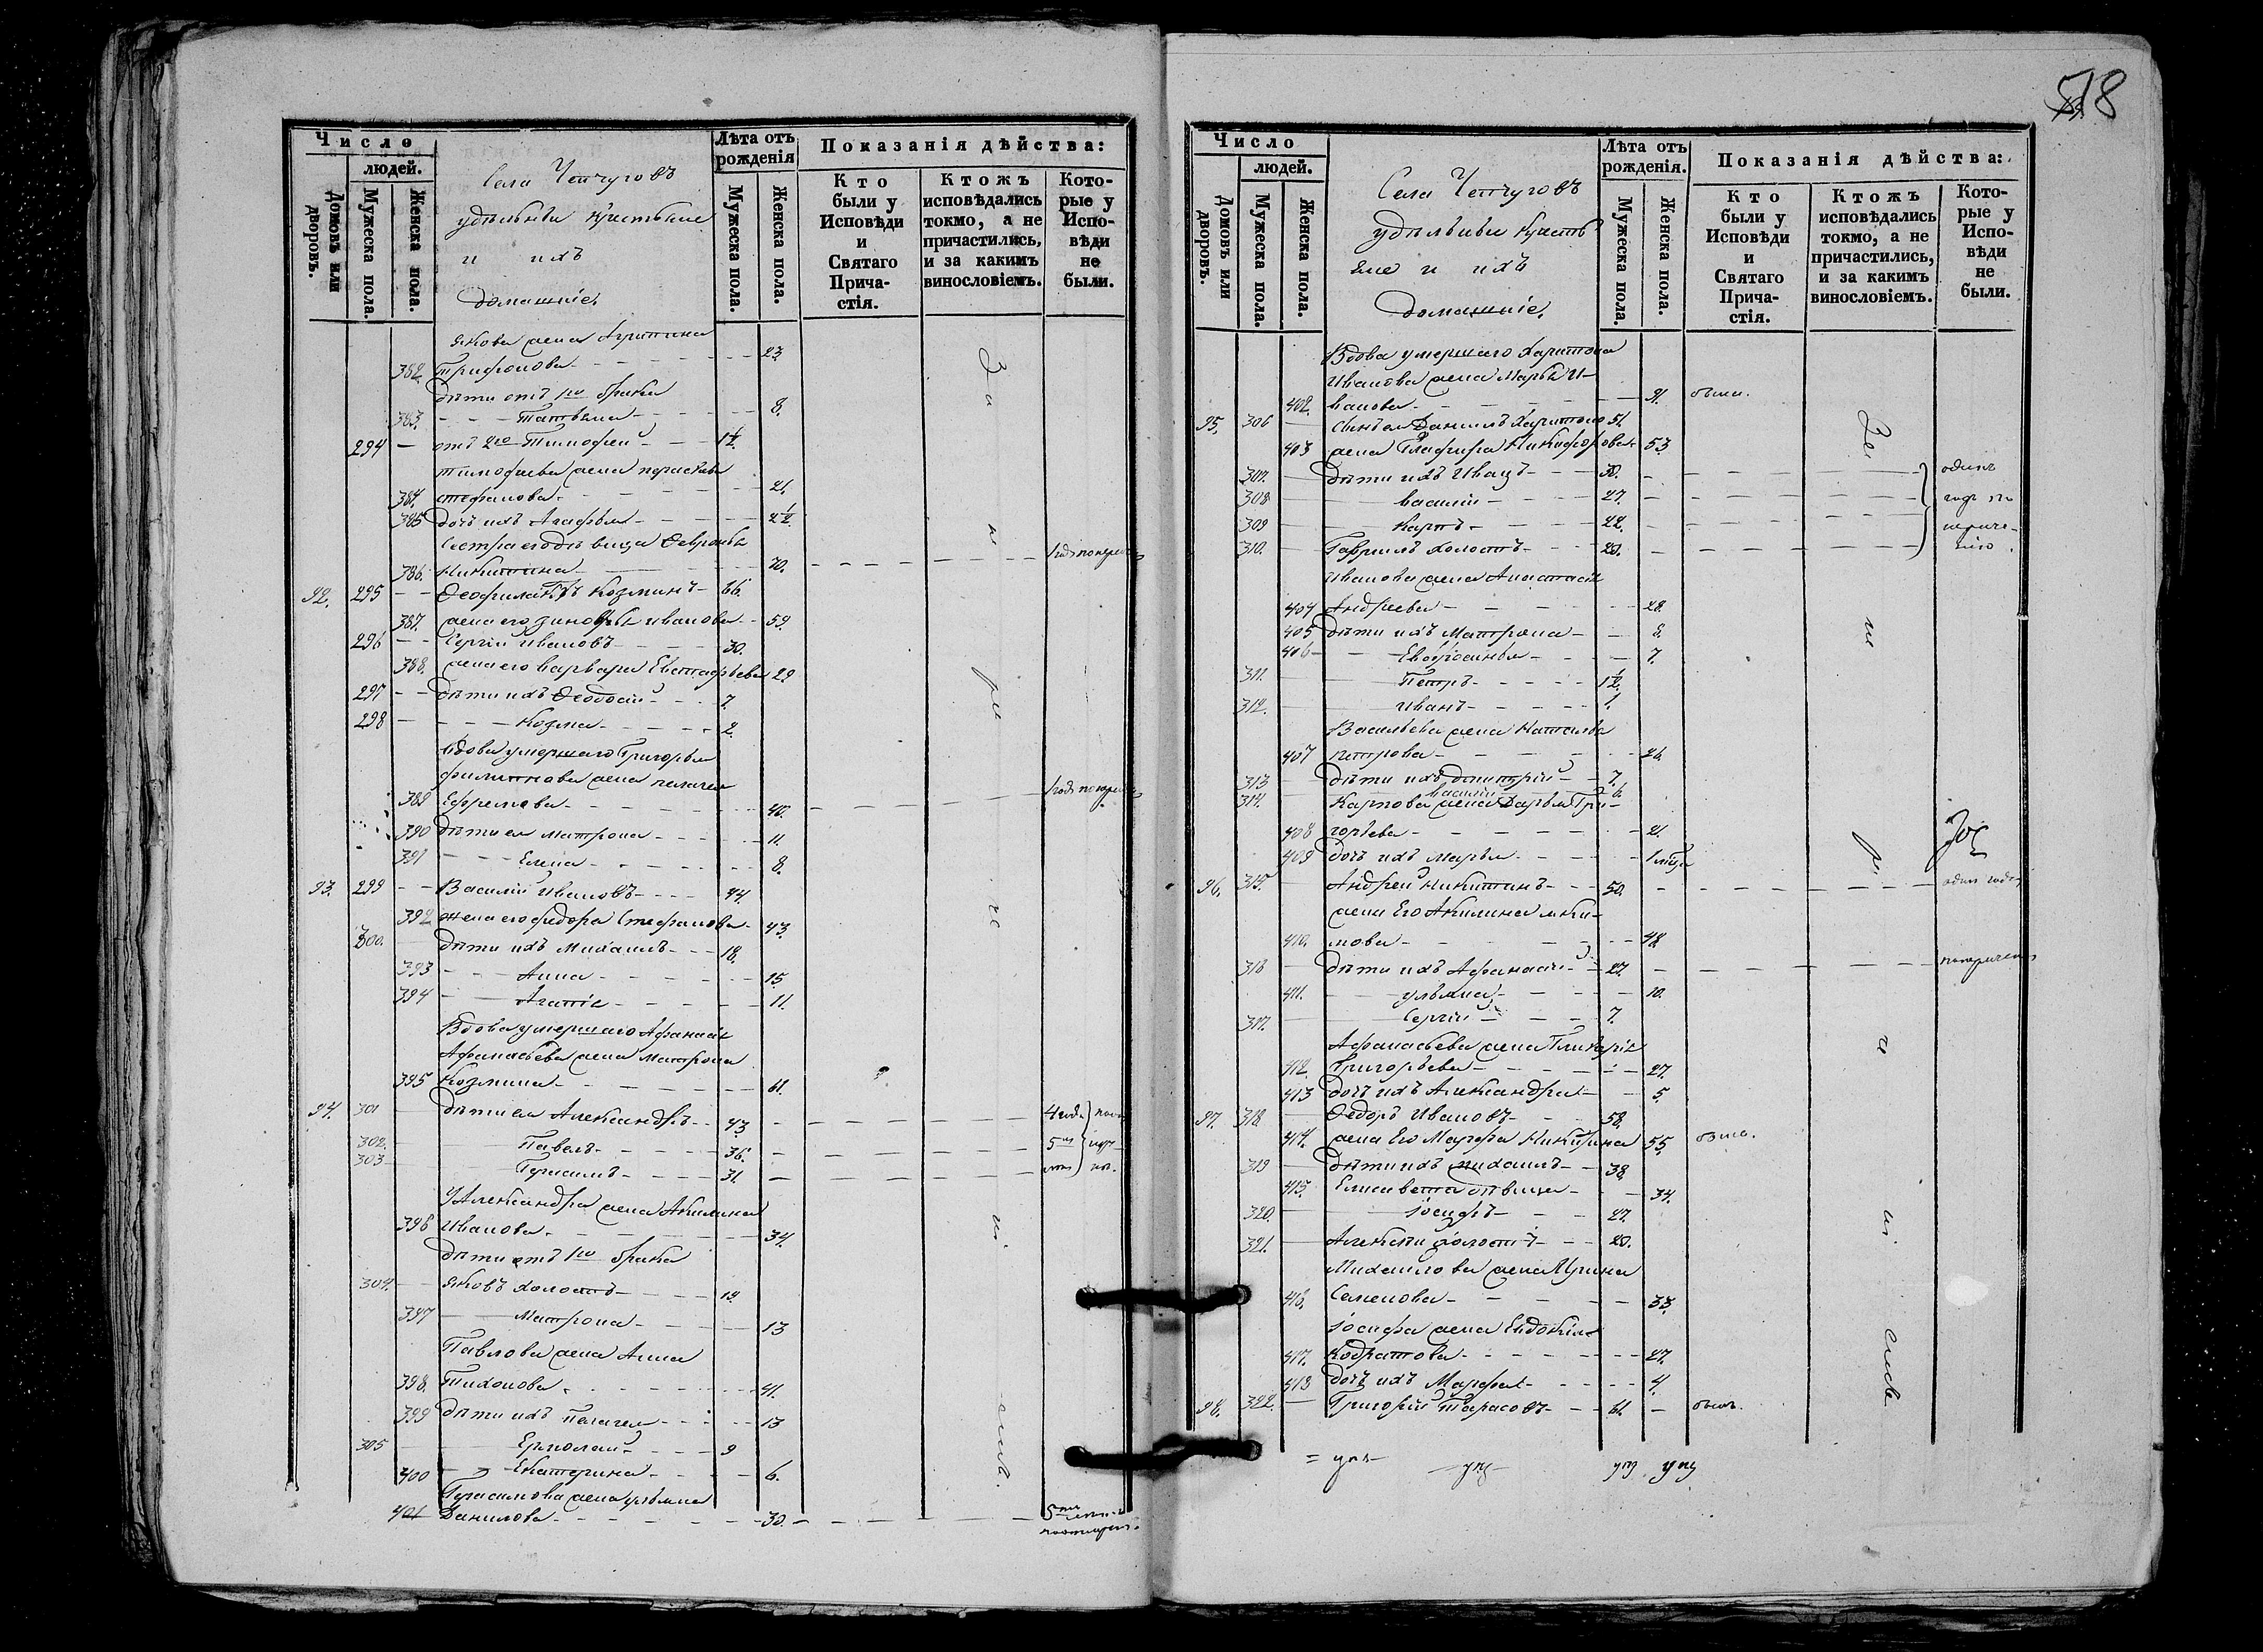 518
Число
людей.
Домовъ или дворовъ.
Мужеска пола.
Женска пола.
Села Чепчуговъ
удѣльныя крестьяне
и ихъ
домашніе.
Лѣта отъ рожденія
Мужеска пола.
Женска пола.
Показанія дѣйства:
Кто были у Исповѣди и Святаго Прича-стія.
Ктожъ исповѣдались токмо, а не причастились, и за какимъ винословіемъ.
Кото-рые у Испо-вѣди не были.
Якова жена Агрипина
382. Трифонова 23.
дѣти отъ 1го брака
383. Татьяна 8.
294 отъ 2го Тимофей 1½
Тимофеева жена Параскева
384. Стефанова 21.
385 дочь ихъ Агафья 2½
Сестра его дѣвица Февронья
386. Никитина 70.
92. 295 Феофилактъ Козминъ 66.
387. жена его Зиновья Иванова 59.
296 Сергій Ивановъ 30.
388. жена его Варвара Евстафьева 29
297 дѣти ихъ Феодосій 7.
298 Козма 2.
Вдова умершаго Григорья
Филипова жена Пелагея
389 Ефремова 40.
390 дѣти ея Матрона 11.
391 Елена 8.
93. 299 Василій Ивановъ 44.
392 жена его Федора Стефанова 43.
300. дѣти ихъ Михаилъ 18.
393 Анна 15.
394 Агапія 11.
Вдова умершаго Афанасія
Афанасьева жена Матрона
395 Козмина 61.
94. 301 дѣти ея Александръ 43.
302. Павелъ 36.
303 Герасимъ 31.
У Александра жена Акилина
396 Иванова 34.
дѣти отъ 1го брака
304. Яковъ холостъ 19.
397 Матрона 13
Павлова жена Анна
398. Тихонова 41.
399 дѣти ихъ Пелагея 13
305 Ермолай 9
400 Екатерина 6.
Герасимова жена Ульяна
401 Данилова 30.
Число
людей.
Домовъ или дворовъ.
Мужеска пола.
Женска пола.
Села Чепчуговъ
удѣльныя кресть
яне и ихъ
домашніе.
Лѣта отъ рожденія.
Мужеска пола.
Женска пола.
Показанія дѣйства:
Кто были у Исповѣди и Святаго Прича-стія.
Ктожъ исповѣдались токмо, а не причастились, и за какимъ винословіемъ.
Кото-рые у Испо-вѣди не были.
Вдова умершаго Харитона
Иванова жена Марья И-
402. ванова 91. была.
95. 306 Сынъ ея Данилъ Харитоно 51.
403 жена Глафира Никифорова 53.
307. дѣти ихъ Иванъ 30.
308 Василій 27.
309 Карпъ 22.
310. Гавріилъ холостъ 20.
Иванова жена Анастасія
404 Андреева 28.
405 дѣти ихъ Матрона 8.
406 Евфросинья 7.
311. Петръ 1½.
312. Иванъ 1.
Васильева жена Наталья
407 Петрова 26.
313 дѣти ихъ Димитрій 7.
314. Василій 6.
Карпова жена Дарья Гри-
408 горьева 21.
409 дочь ихъ Марья
96. 315. Андрей Никитинъ 50.
жена Его Акилина Аки-
410. мова 48.
316 дѣти ихъ Афанасій 27.
411. Ульяна 10.
317. Сергій 7.
Афанасьева жена Гликерія
412. Григорьева 27.
413 дочь ихъ Александра 5.
97. 318. Федоръ Ивановъ 58.
414. жена Его Марфа Никитина 55. была.
319 дѣти ихъ Михаилъ 38.
415. Елисавета дѣвица 34.
320. Іосифъ 27.
321. Алексѣй холостъ 20.
Михайлова жена Ирина
416. Семенова 33.
Іосифа жена Евдокія
417. Кодратова 27.
418 дочь ихъ Марфа 4.
98. 322. Григорій Тарасовъ 61. былъ.